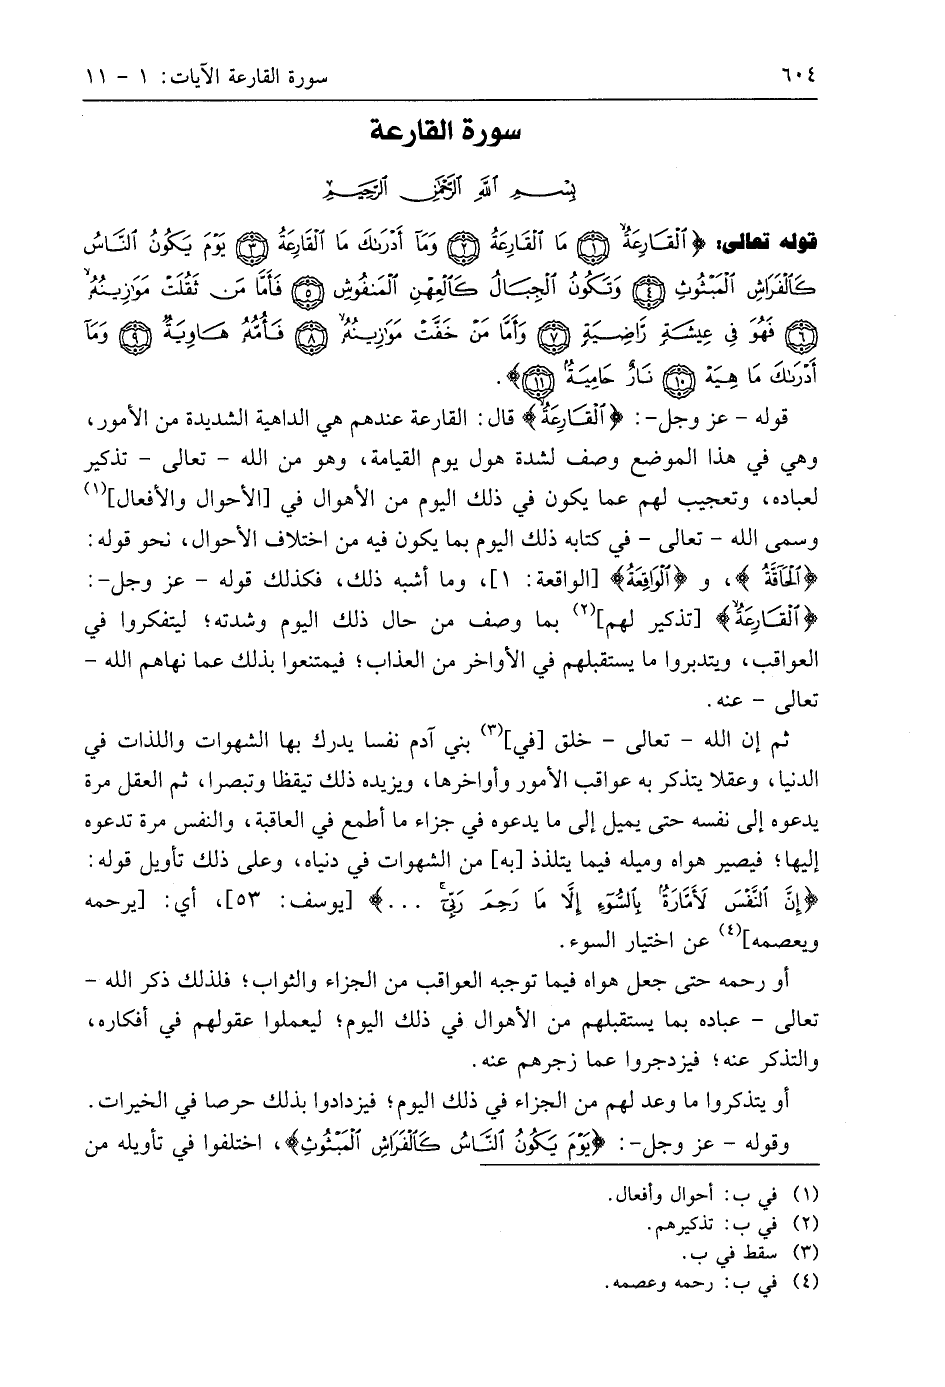 ٦٠٤ سورة القارعة الآيات: ١ - ١١
سورة القارعة
بِسْمِ ٱللَّهِ ٱلرَّحْمَٰنِ ٱلرَّحِيمِ
قوله تعالى: ﴿ٱلْقَارِعَةُ ۝١ مَا ٱلْقَارِعَةُ ۝٢ وَمَآ أَدْرَىٰكَ مَا ٱلْقَارِعَةُ ۝٣ يَوْمَ يَكُونُ ٱلنَّاسُ
كَٱلْفَرَاشِ ٱلْمَبْثُوثِ ۝٤ وَتَكُونُ ٱلْجِبَالُ كَٱلْعِهْنِ ٱلْمَنفُوشِ ۝٥ فَأَمَّا مَن ثَقُلَتْ مَوَٰزِينُهُۥ
۝٦ فَهُوَ فِى عِيشَةٍ رَّاضِيَةٍ ۝٧ وَأَمَّا مَنْ خَفَّتْ مَوَٰزِينُهُۥ ۝٨ فَأُمُّهُۥ هَاوِيَةٌ ۝٩ وَمَآ
أَدْرَىٰكَ مَا هِيَهْ ۝١٠ نَارٌ حَامِيَةٌۢ ۝١١﴾.
قوله - عز وجل-: ﴿ٱلْقَارِعَةُ﴾ قال: القارعة عندهم هي الداهية الشديدة من الأمور،
وهي في هذا الموضع وصف لشدة هول يوم القيامة، وهو من الله - تعالى - تذكير
لعباده، وتعجيب لهم عما يكون في ذلك اليوم من الأهوال في [الأحوال والأفعال](١)
وسمى الله - تعالى - في كتابه ذلك اليوم بما يكون فيه من اختلاف الأحوال، نحو قوله:
﴿ٱلْحَآقَّةُ﴾، و ﴿ٱلْوَاقِعَةُ﴾ [الواقعة: ١]، وما أشبه ذلك، فكذلك قوله - عز وجل-:
﴿ٱلْقَارِعَةُ﴾ [تذكير لهم](٢) بما وصف من حال ذلك اليوم وشدته؛ ليتفكروا في
العواقب، ويتدبروا ما يستقبلهم في الأواخر من العذاب؛ فيمتنعوا بذلك عما نهاهم الله -
تعالى - عنه.
ثم إن الله - تعالى - خلق [في](٣) بني آدم نفسا يدرك بها الشهوات واللذات في
الدنيا، وعقلا يتذكر به عواقب الأمور وأواخرها، ويزيده ذلك تيقظا وتبصرا، ثم العقل مرة
يدعوه إلى نفسه حتى يميل إلى ما يدعوه في جزاء ما أطمع في العاقبة، والنفس مرة تدعوه
إليها؛ فيصير هواه وميله فيما يتلذذ [به] من الشهوات في دنياه، وعلى ذلك تأويل قوله:
﴿إِنَّ ٱلنَّفْسَ لَأَمَّارَةٌۢ بِٱلسُّوٓءِ إِلَّا مَا رَحِمَ رَبِّىٓ ...﴾ [يوسف: ٥٣]، أي: [يرحمه
ويعصمه](٤) عن اختيار السوء.
أو رحمه حتى جعل هواه فيما توجبه العواقب من الجزاء والثواب؛ فلذلك ذكر الله -
تعالى - عباده بما يستقبلهم من الأهوال في ذلك اليوم؛ ليعملوا عقولهم في أفكاره،
والتذكر عنه؛ فيزدجروا عما زجرهم عنه.
أو يتذكروا ما وعد لهم من الجزاء في ذلك اليوم؛ فيزدادوا بذلك حرصا في الخيرات.
وقوله - عز وجل-: ﴿يَوْمَ يَكُونُ ٱلنَّاسُ كَٱلْفَرَاشِ ٱلْمَبْثُوثِ﴾، اختلفوا في تأويله من
(١) في ب: أحوال وأفعال.
(٢) في ب: تذكيرهم.
(٣) سقط في ب.
(٤) في ب: رحمه وعصمه.